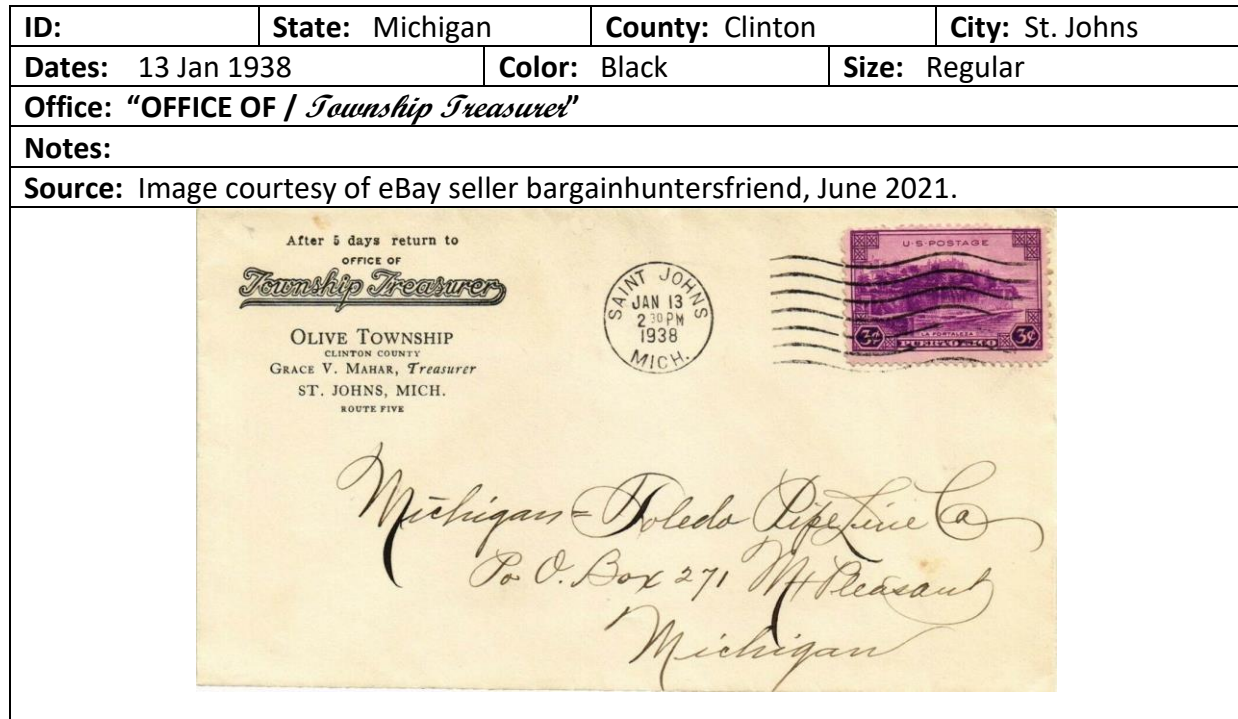 ID: State: Michigan County: Clinton City: St. Johns
Dates: 13 Jan 1938 Color: Black Size: Regular
Office: “OFFICE OF / Township Treasurer”
Notes:
Source: Image courtesy of eBay seller bargainhuntersfriend, June 2021.
After 5 days return to
OFFICE OF
Township Treasurer
OLIVE TOWNSHIP
CLINTON COUNTY
GRACE V. MAHAR, Treasurer
ST. JOHNS, MICH.
ROUTE FIVE
SAINT JOHNS
JAN 13
2 30 PM
1938
MICH.
U·S·POSTAGE
LA FORTALEZA
3¢ PUERTO RICO 3¢
Michigan=Toledo Pipe Line Co
Po O. Box 271 Mt Pleasant
Michigan